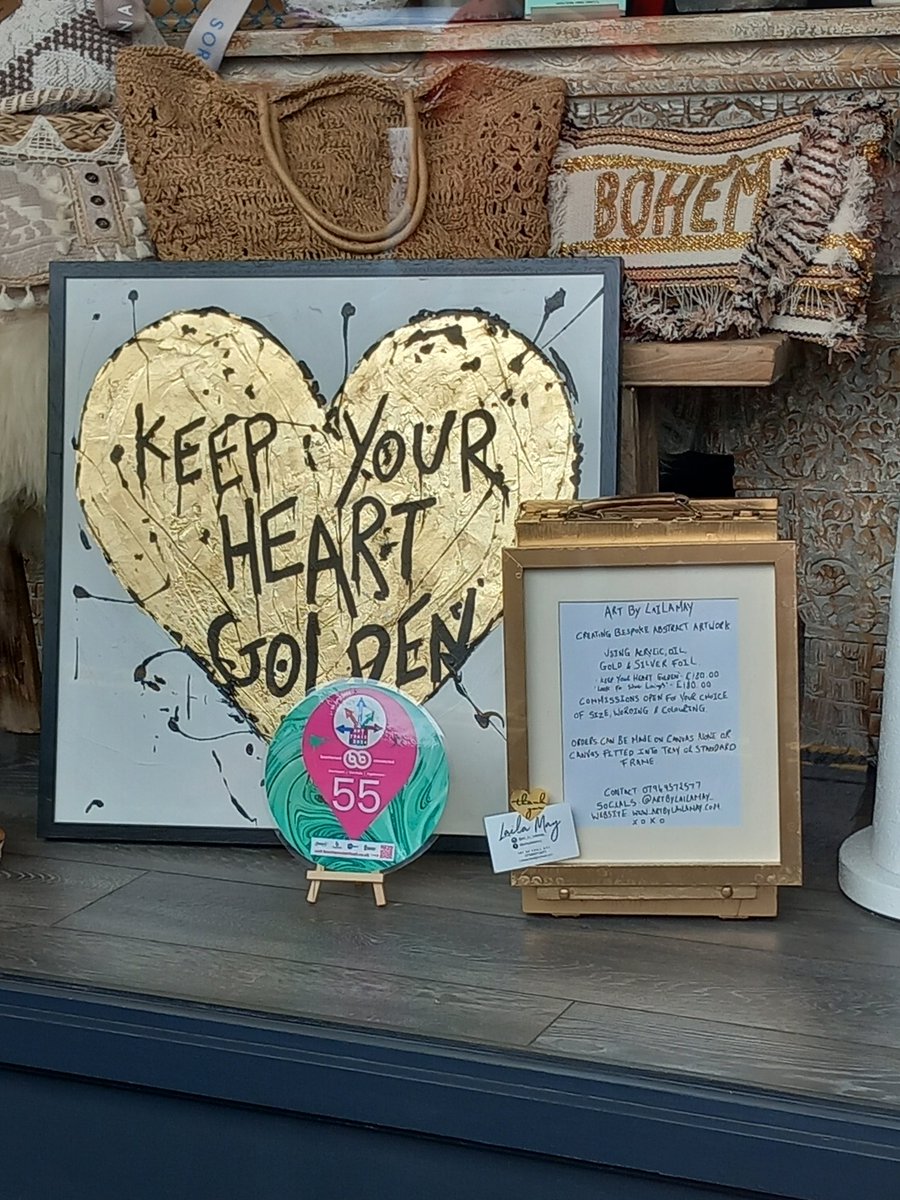 SOR
NA
BOHEM
KEEP YOUR
HEART
GOLDEN
ART
TRAIL
55
ART BY LAILAMAY
CREATING BESPOKE ABSTRACT ARTWORK
USING ACRYLIC, OIL
GOLD & SILVER FOIL
· KEEP YOUR HEART GOLDEN - £180.00
- £180.00
COMMISSIONS OPEN FOR YOUR CHOICE
OF SIZE, WORDING & COLOURING.
ORDERS CAN BE MADE ON CANVAS ALONE OR
CANVAS FITTED INTO TRAY OR STANDARD
FRAME.
CONTACT 07969572577
SOCIALS @ARTBYLAILAMAY
WEBSITE WWW.ARTBYLAILAMAY.COM
XOXO
thank
you
Laila May